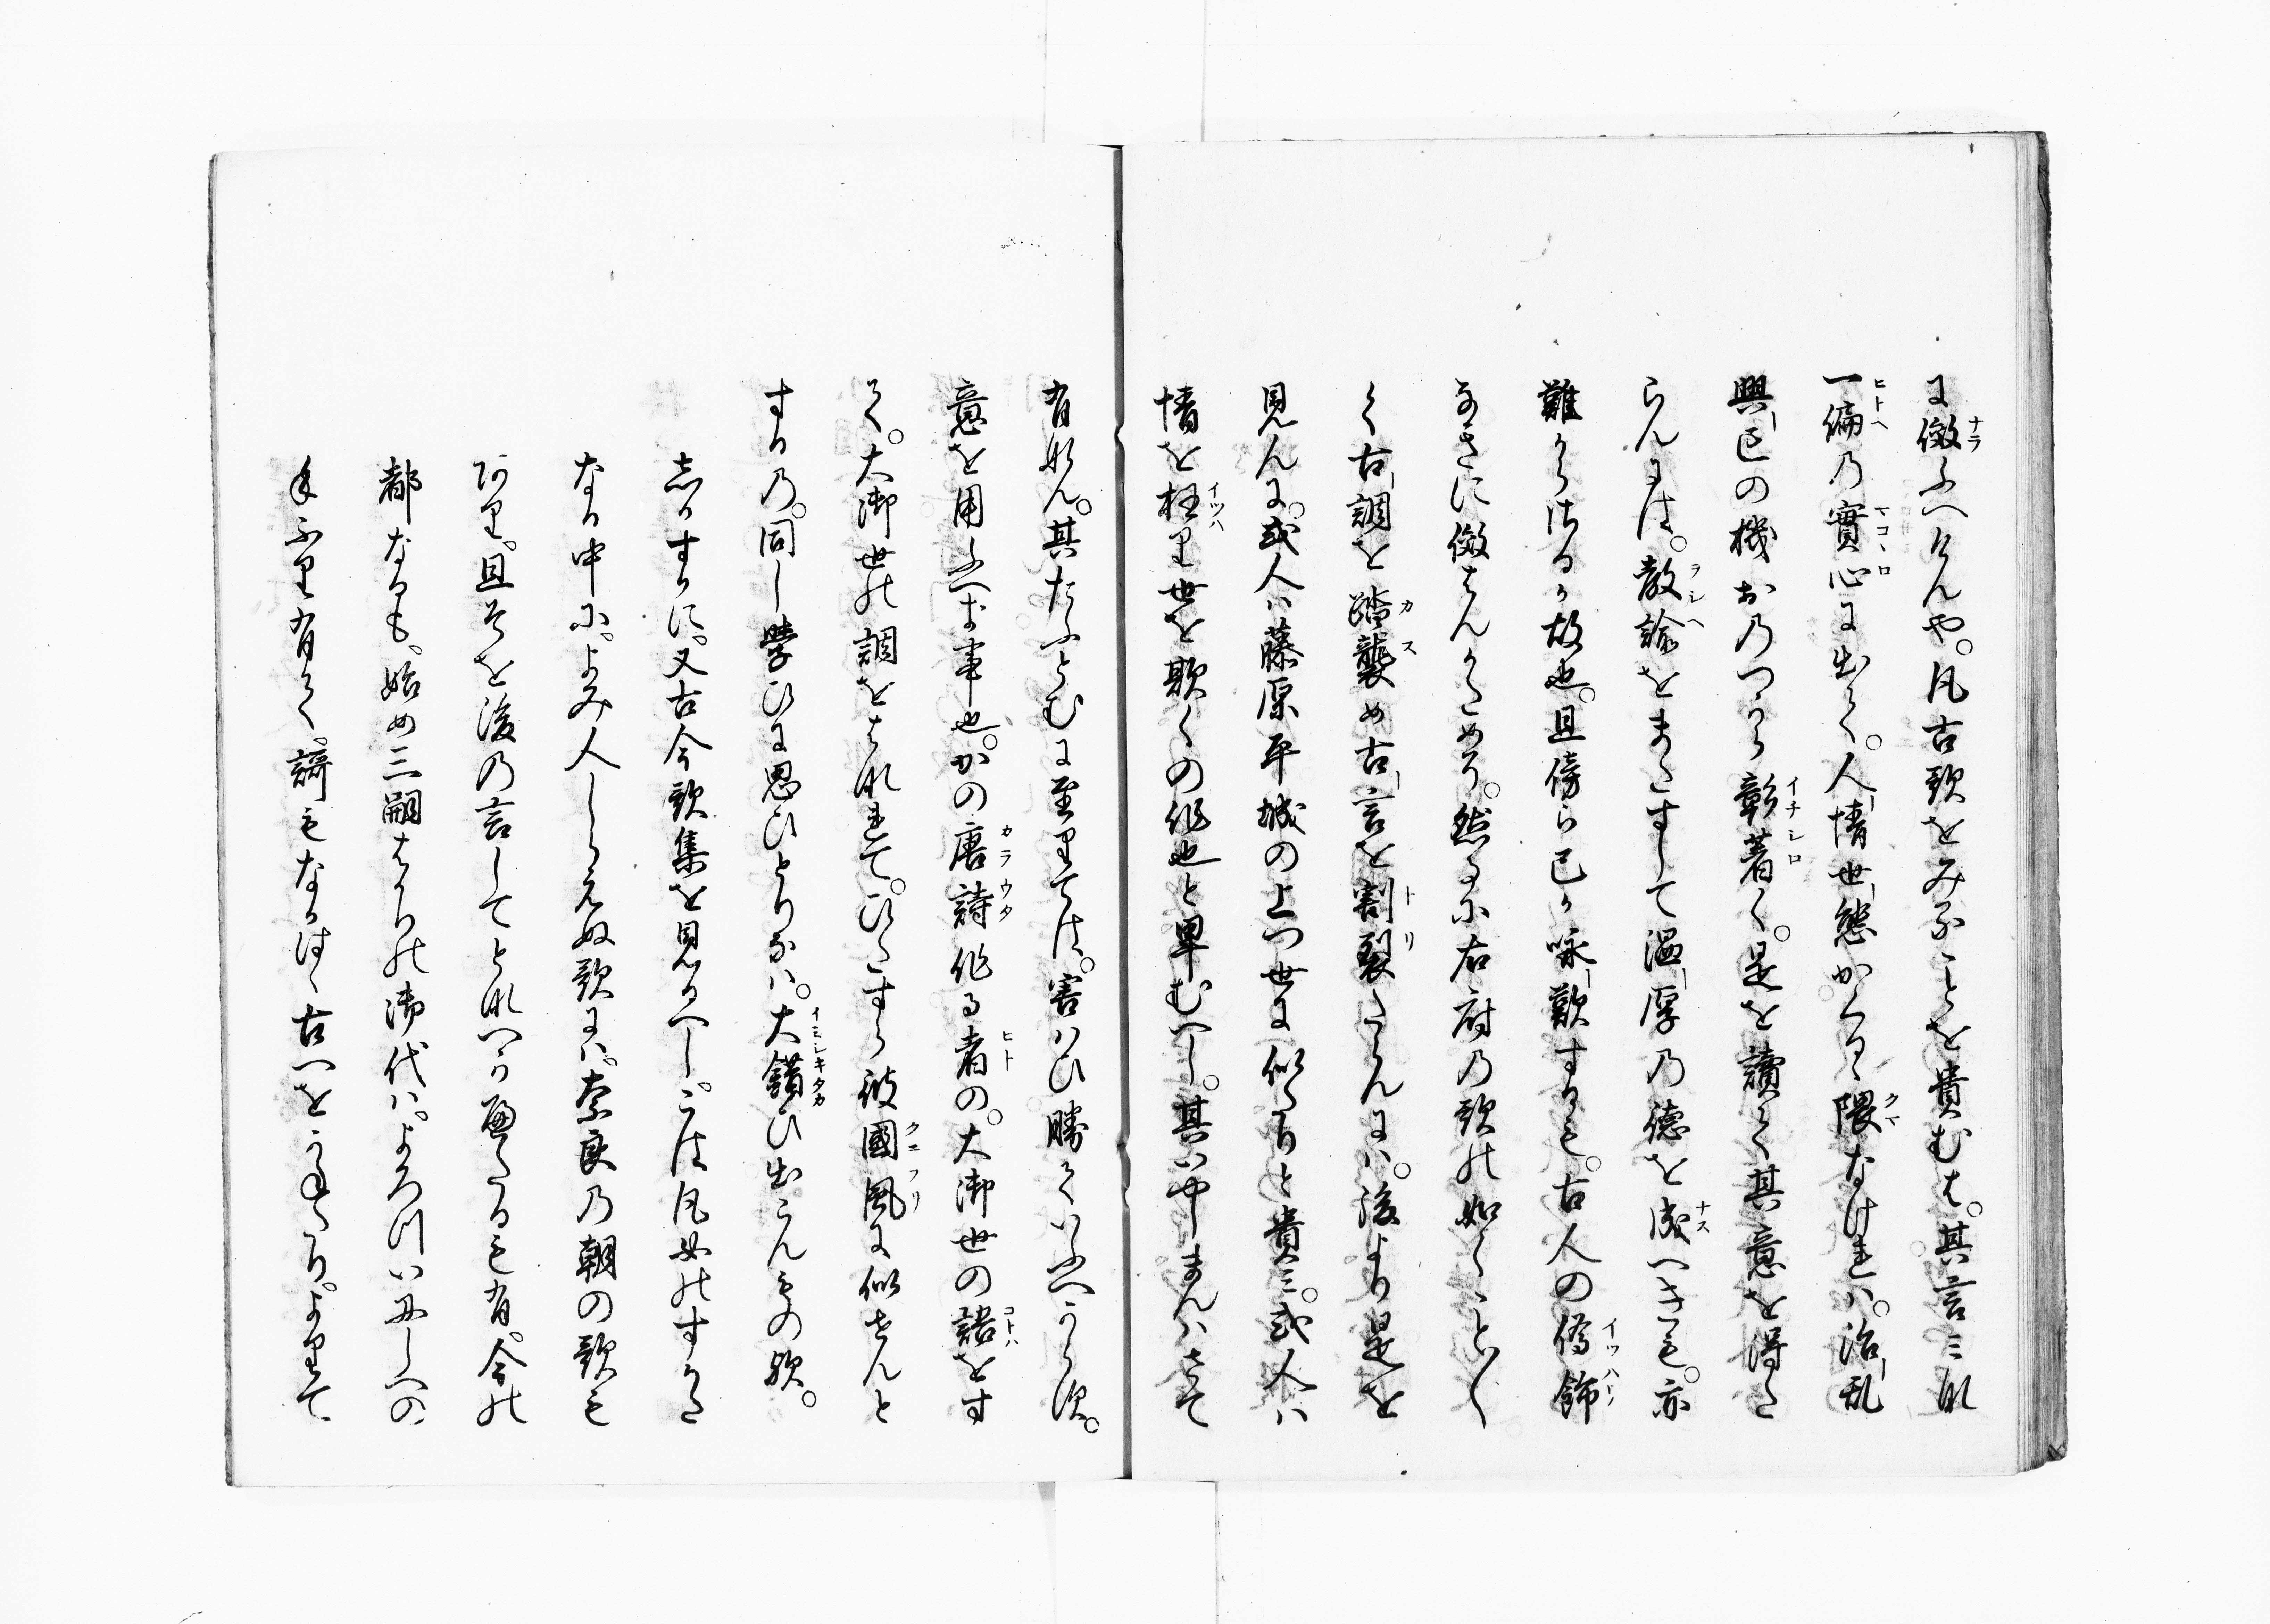 に傚ふへけんや。凡古歌をみなことを貴むは。其言ミな
一偏乃實心に出て。人情世態かくるゝ隈なけれハ。治乱
興亡の機おのつから彰著く。是を讀て其意を得た
らんには。教諭をまたすして温厚乃徳を成へきも。亦
難からさるか故也。且傍ら己か咏歎するも。古人の偽飾
なきに傚はんかためり。然るに右府乃歌の如くことく
く古調を踏襲め古言を割裂たらんにハ。後より是を
見んに。或人ハ藤原平城の上つ世に似たりと貴ミ。或人ハ
情を枉り世を欺くの作也と卑むへし。其いやしまんハさて
有なん。其たふとむに至りては。害ハひ勝ていふへからす。
意を用ふへき事也。かの唐詩作る者の。大御世の語をす
て。大御世の調をはなれて。ひたすら彼國風に似せんと
するの。同し學ひに思ひとりなハ。大錯ひ出こんもの歟。
志かすかに。又古今歌集を見るへし。こは凡女のすかた
なる中に。よみ人しらえぬ歌には。奈良乃朝の歌も
あり。且そを後乃言してとなへかへたるも有。今の
都なるも。始め三嗣はかりの御代ハ。よろついにしへの
手ふり有て。謌もなかは古へをうねたり。よりて